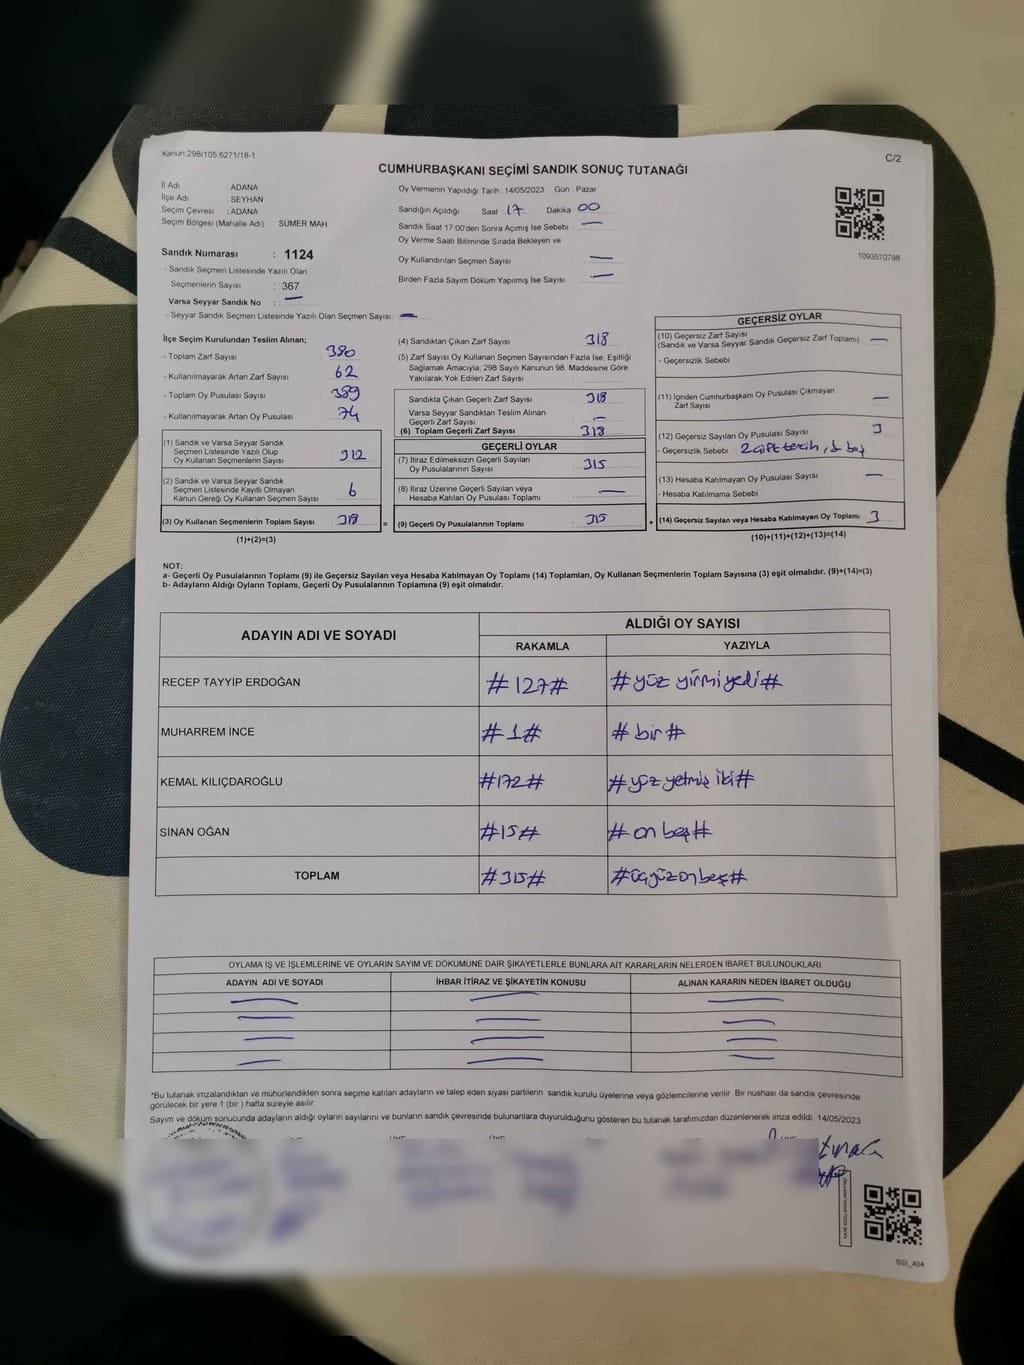 Kanun.298/105,6271/18-1
C/2
CUMHURBAŞKANI SEÇİMİ SANDIK SONUÇ TUTANAĞI
İl Adı ADANA
İlçe Adı : SEYHAN
Seçim Çevresi : ADANA
Seçim Bölgesi (Mahalle Adı) SÜMER MAH
Sandık Numarası : 1124
- Sandık Seçmen Listesinde Yazılı Olan
Seçmenlerin Sayısı : 367
Varsa Seyyar Sandık No : —
- Seyyar Sandık Seçmen Listesinde Yazılı Olan Seçmen Sayısı: —
Oy Vermenin Yapıldığı Tarih : 14/05/2023 Gün : Pazar
Sandığın Açıldığı Saat 17 Dakika 00
Sandık Saat 17:00'den Sonra Açımış İse Sebebi : —
Oy Verme Saati Bitiminde Sırada Bekleyen ve
Oy Kullandırılan Seçmen Sayısı —
Birden Fazla Sayım Döküm Yapılmış İse Sayısı : —
1093570798
İlçe Seçim Kurulundan Teslim Alınan;
- Toplam Zarf Sayısı : 380
- Kullanılmayarak Artan Zarf Sayısı : 62
- Toplam Oy Pusulası Sayısı : 389
- Kullanılmayarak Artan Oy Pusulası : 74
(1) Sandık ve Varsa Seyyar Sandık
Seçmen Listesinde Yazılı Olup
Oy Kullanan Seçmenlerin Sayısı : 312
(2) Sandık ve Varsa Seyyar Sandık
Seçmen Listesinde Kayıtlı Olmayan
Kanun Gereği Oy Kullanan Seçmen Sayısı : 6
(3) Oy Kullanan Seçmenlerin Toplam Sayısı : 318
(1)+(2)=(3)
(4) Sandıktan Çıkan Zarf Sayısı : 318
(5) Zarf Sayısı Oy Kullanan Seçmen Sayısından Fazla İse, Eşitliği
Sağlamak Amacıyla; 298 Sayılı Kanunun 98. Maddesine Göre
Yakılarak Yok Edilen Zarf Sayısı :
Sandıkta Çıkan Geçerli Zarf Sayısı : 318
Varsa Seyyar Sandıktan Teslim Alınan
Geçerli Zarf Sayısı : —
(6) Toplam Geçerli Zarf Sayısı : 318
GEÇERLİ OYLAR
(7) İtiraz Edilmeksizin Geçerli Sayılan
Oy Pusulalarının Sayısı : 315
(8) İtiraz Üzerine Geçerli Sayılan veya
Hesaba Katılan Oy Pusulası Toplamı : —
= (9) Geçerli Oy Pusulalarının Toplamı : 315 +
GEÇERSİZ OYLAR
(10) Geçersiz Zarf Sayısı
(Sandık ve Varsa Seyyar Sandık Geçersiz Zarf Toplamı) : —
- Geçersizlik Sebebi
(11) İçinden Cumhurbaşkanı Oy Pusulası Çıkmayan
Zarf Sayısı : —
(12) Geçersiz Sayılan Oy Pusulası Sayısı : 3
- Geçersizlik Sebebi 2 çift tercih, 1 boş
(13) Hesaba Katılmayan Oy Pusulası Sayısı : —
- Hesaba Katılmama Sebebi :
(14) Geçersiz Sayılan veya Hesaba Katılmayan Oy Toplamı : 3
(10)+(11)+(12)+(13)=(14)
NOT:
a- Geçerli Oy Pusulalarının Toplamı (9) ile Geçersiz Sayılan veya Hesaba Katılmayan Oy Toplamı (14) Toplamları, Oy Kullanan Seçmenlerin Toplam Sayısına (3) eşit olmalıdır. (9)+(14)=(3)
b- Adayların Aldığı Oyların Toplamı, Geçerli Oy Pusulalarının Toplamına (9) eşit olmalıdır.
ADAYIN ADI VE SOYADI
ALDIĞI OY SAYISI
RAKAMLA YAZIYLA
RECEP TAYYİP ERDOĞAN #127# #yüz yirmi yedi#
MUHARREM İNCE #1# #bir#
KEMAL KILIÇDAROĞLU #172# #yüz yetmiş iki#
SİNAN OĞAN #15# #on beş#
TOPLAM #315# #üçyüzonbeş#
OYLAMA İŞ VE İŞLEMLERİNE VE OYLARIN SAYIM VE DÖKÜMÜNE DAİR ŞİKAYETLERLE BUNLARA AİT KARARLARIN NELERDEN İBARET BULUNDUKLARI
ADAYIN ADI VE SOYADI İHBAR İTİRAZ VE ŞİKAYETİN KONUSU ALINAN KARARIN NEDEN İBARET OLDUĞU
*Bu tutanak imzalandıktan ve mühürlendikten sonra seçime katılan adayların ve talep eden siyasi partilerin sandık kurulu üyelerine veya gözlemcilerine verilir. Bir nüshası da sandık çevresinde
görülecek bir yere 1 (bir) hafta süreyle asılır.
Sayım ve döküm sonucunda adayların aldığı oyların sayılarını ve bunların sandık çevresinde bulunanlara duyurulduğunu gösteren bu tutanak tarafımızdan düzenlenerek imza edildi. 14/05/2023
SSI_404